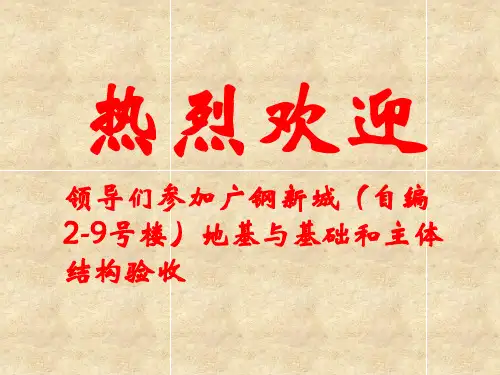 热烈欢迎
领导们参加广钢新城（自编
2-9号楼）地基与基础和主体
结构验收